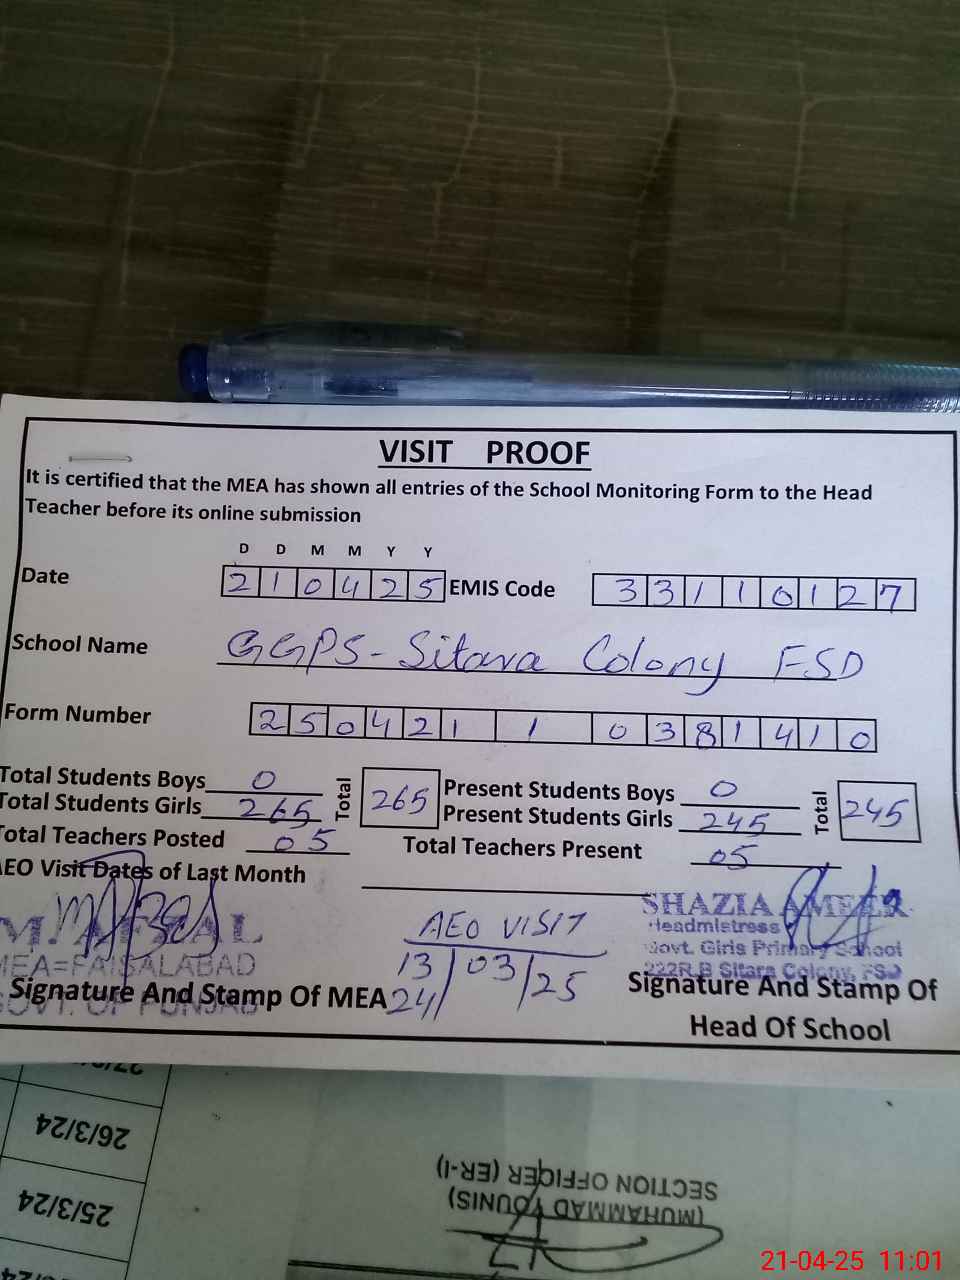 VISIT PROOF
It is certified that the MEA has shown all entries of the School Monitoring Form to the Head
Teacher before its online submission
D D M M Y Y
Date 210425 EMIS Code 33110127
School Name GGPS-Sitara Colony FSD
Form Number 25042110381410
Total Students Boys 0 Total 265 Present Students Boys 0 Total 245
Total Students Girls 265 Present Students Girls 245
Total Teachers Posted 05 Total Teachers Present 05
AEO Visit Dates of Last Month
SHAZIA AMEER
Headmistress
Govt. Girls Primary School
222R.B Sitara Colony, FSD
AEO VISIT
13/03/25
24/
MEA=FAISALABAD
GOVT. OF PUNJAB
Signature And Stamp Of MEA
Signature And Stamp Of
Head Of School
26/3/24
25/3/24
SECTION OFFICER (ER-I)
(MUHAMMAD YOUNIS)
21-04-25 11:01